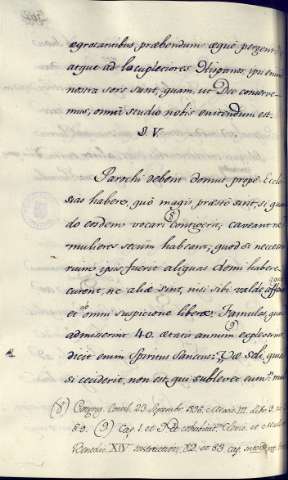 ægrotantibus præbendum æque pergendum
atque ad locupletiores Hispanos, ipsi enim
nostra sors sunt, quam, ut Deo conserve-
mus, omni studio nobis enitendum est.
§. V.
Parochi debent domus prope Eccle-
sias habere, quo magis præsto sint, si quan-
do eordem vocari contigerit, caveant ne
mulieres secum habeant, quod si necessa-
rium ipsis fuerit aliquas domi habere
curent, ne aliæ sint, nisi sibi valde
et ab omni suspicione liberæ. Famulas, quas
admisserint 40. ætatis annum expleverint
dicit enim Spiritus Sanctus: Væ soli, quia
si ceciderit, non est, qui sublevet eum
(8) Congreg. Concil. 23. Septembr.
80. (9) Cap. 1. et
Bened. XIV instruction. 82. et 83. cap.